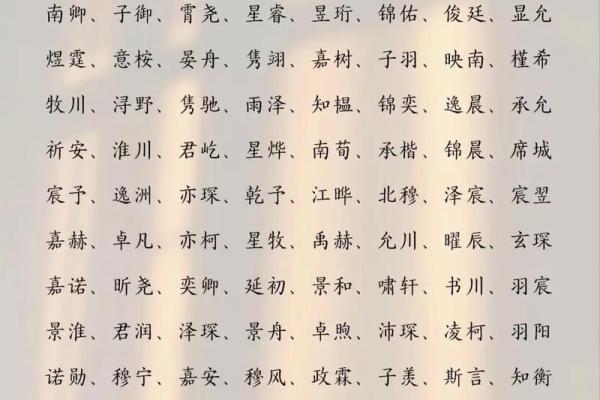 南卿、子御、霄尧、星睿、昱珩、锦佑、俊廷、显允
煜霆、意桉、晏舟、隽翊、嘉树、子羽、映南、槿希
牧川、浔野、隽驰、雨泽、知韫、锦奕、逸晨、承允
祈安、淮川、君屹、星烨、南荀、承楷、锦晨、席城
宸予、逸洲、亦琛、乾予、江晔、北穆、泽宸、宸翌
嘉赫、卓凡、亦柯、星牧、禹赫、允川、曜辰、玄琛
嘉诺、昕尧、奕卿、延初、景和、啸轩、书川、羽宸
景淮、君润、泽琛、景舟、卓煦、沛琛、凌柯、羽阳
诺勋、穆宁、嘉安、穆风、政霖、子羡、斯言、知衡